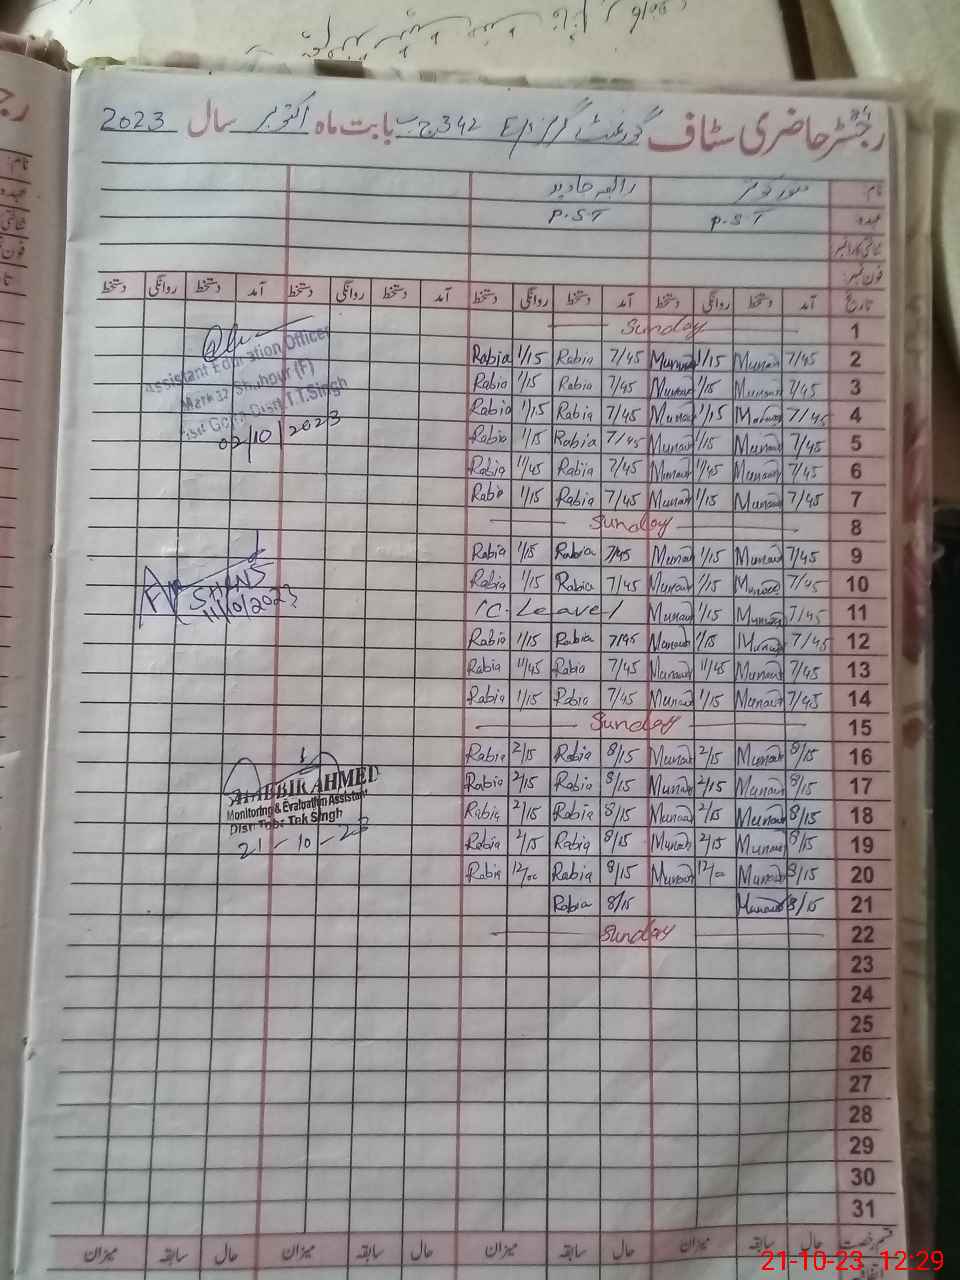 رجسٹر حاضری سٹاف گورنمنٹ گرلز E/S 342 ج ب بابت ماہ اکتوبر سال 2023
نام رابعہ جاوید
عہدہ P.S.T P.S.T
فون نمبر:
تاریخ آمد دستخط روانگی دستخط آمد دستخط روانگی دستخط آمد دستخط روانگی دستخط آمد دستخط روانگی دستخط
1 Sunday
2 7/45 Munawar 1/15 Munawar 7/45 Rabia 1/15 Rabia
3 7/45 Munawar 1/15 Munawar 7/45 Rabia 1/15 Rabia
4 7/45 Munawar 1/15 Munawar 7/45 Rabia 1/15 Rabia
5 7/45 Munawar 1/15 Munawar 7/45 Rabia 1/15 Rabia
6 7/45 Munawar 11/45 Munawar 7/45 Rabia 11/45 Rabia
7 7/45 Munawar 1/15 Munawar 7/45 Rabia 1/15 Rabia
8 Sunday
9 7/45 Munawar 1/15 Munawar 7/45 Rabia 1/15 Rabia
10 7/45 Munawar 1/15 Munawar 7/45 Rabia 1/15 Rabia
11 7/45 Munawar 1/15 Munawar / C. Leave /
12 7/45 Munawar 1/15 Munawar 7/45 Rabia 1/15 Rabia
13 7/45 Munawar 11/45 Munawar 7/45 Rabia 11/45 Rabia
14 7/45 Munawar 1/15 Munawar 7/45 Rabia 1/15 Rabia
15 Sunday
16 8/15 Munawar 2/15 Munawar 8/15 Rabia 2/15 Rabia
17 8/15 Munawar 2/15 Munawar 8/15 Rabia 2/15 Rabia
18 8/15 Munawar 2/15 Munawar 8/15 Rabia 2/15 Rabia
19 8/15 Munawar 2/15 Munawar 8/15 Rabia 2/15 Rabia
20 8/15 Munawar 12/00 Munawar 8/15 Rabia 12/00 Rabia
21 8/15 Munawar 8/15 Rabia
22 Sunday
23
24
25
26
27
28
29
30
31
قسم رخصت حال سابقہ میزان حال سابقہ میزان حال سابقہ میزان حال سابقہ میزان
Assistant Education Officer
Markaz (F)
Dist T.T.Singh
02/10/2023
11/10/2023
AHMED
Monitoring & Evaluation Assistant
Distt Toba Tek Singh
21-10-23
21-10-23 12:29